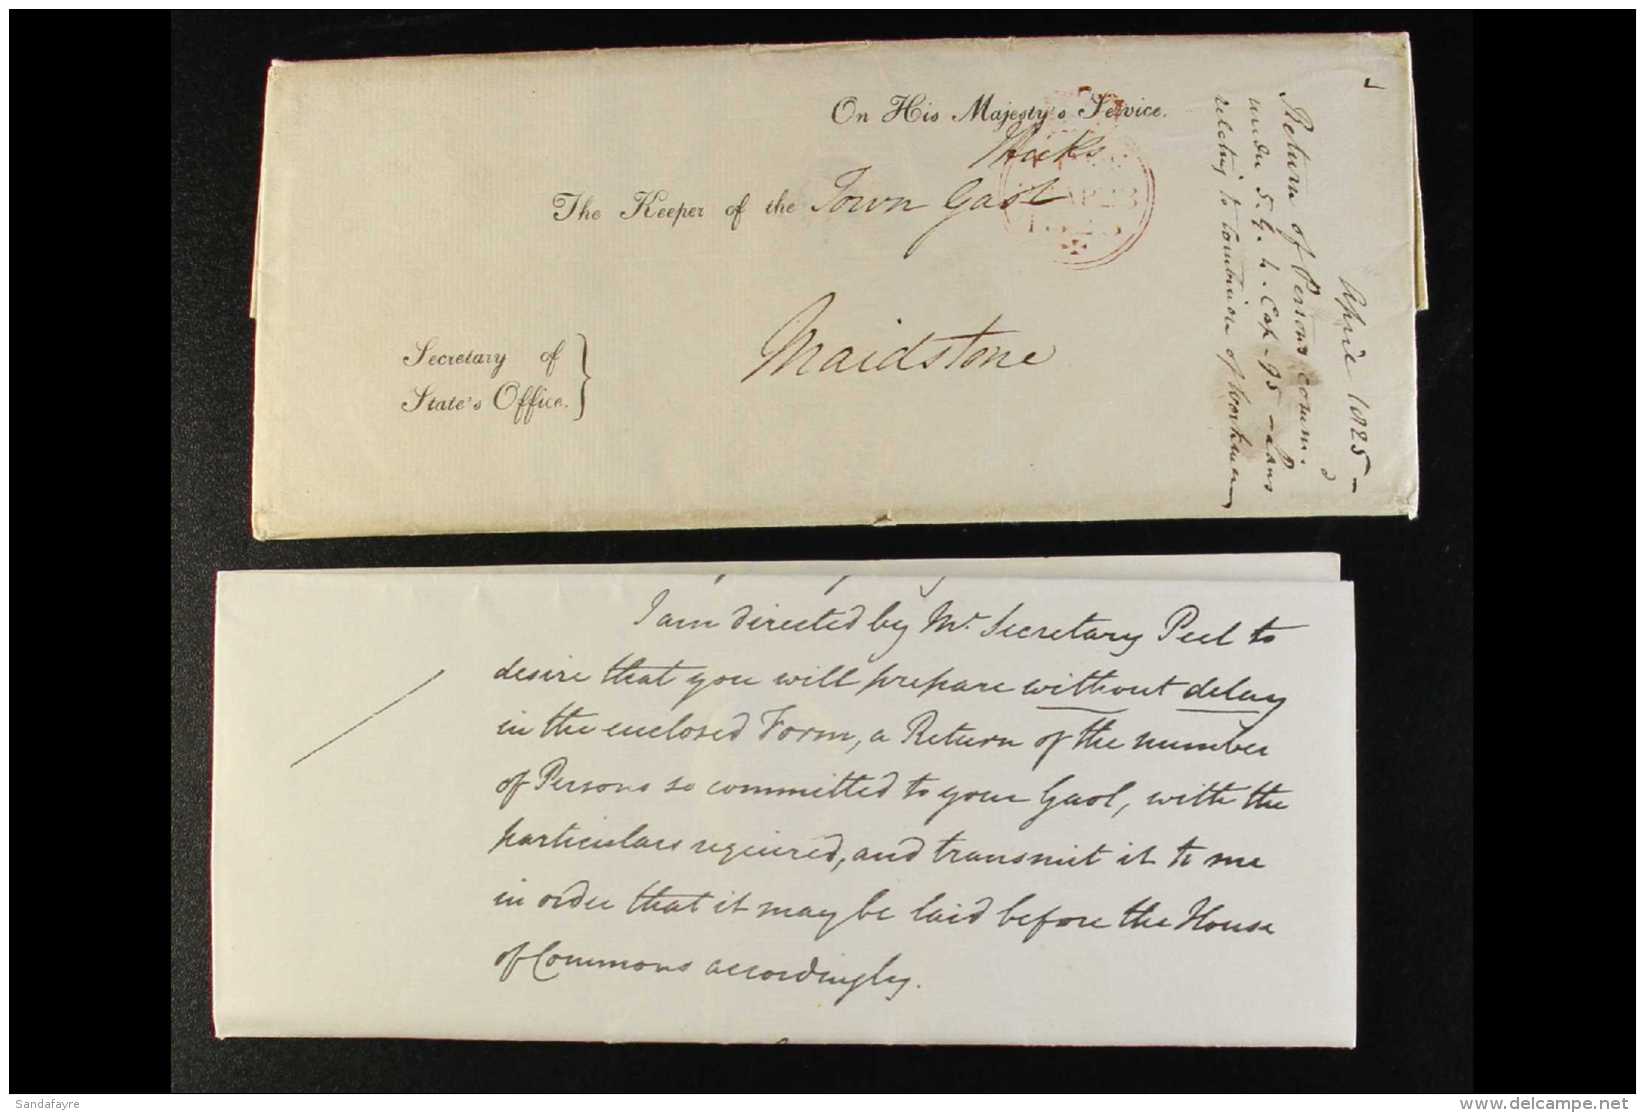 On His Majesty's Service.
The Keeper of the Town Gaol
Maidstone
Secretary of
State's Office.
AP 23
Return of Persons comm:d
under 5. G. 4. Cap. 95 - Laws
relating to Combin on of Workmen
April 1825 -
I am directed by Mr. Secretary Peel to
desire that you will prepare without delay
in the enclosed Form, a Return of the number
of Persons so committed to your Gaol, with the
particulars required, and transmit it to me
in order that it may be laid before the House
of Commons accordingly.
Sandafayre
www.delcampe.net